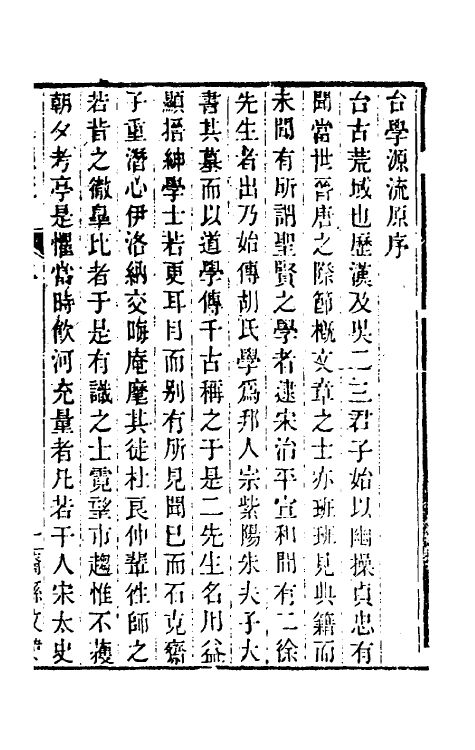 台學源流原序
台古荒域也歷漢及吳二三君子始以幽操貞忠有
聞當世晉唐之際節概文章之士亦班班見典籍而
未聞有所謂聖賢之學者逮宋治平宣和間有二徐
先生者出乃始傳胡氏學爲邦人宗紫陽朱夫子大
書其墓而以道學傳千古稱之于是二先生名用益
顯搢紳學士若更耳目而别有所見聞已而石克齋
子重潛心伊洛納交晦庵麾其徒杜良仲輩徃師之
若昔之徹臯比者于是有識之士霓望市趨惟不獲
朝夕考亭是懼當時飲河充量者凡若干人宋太史